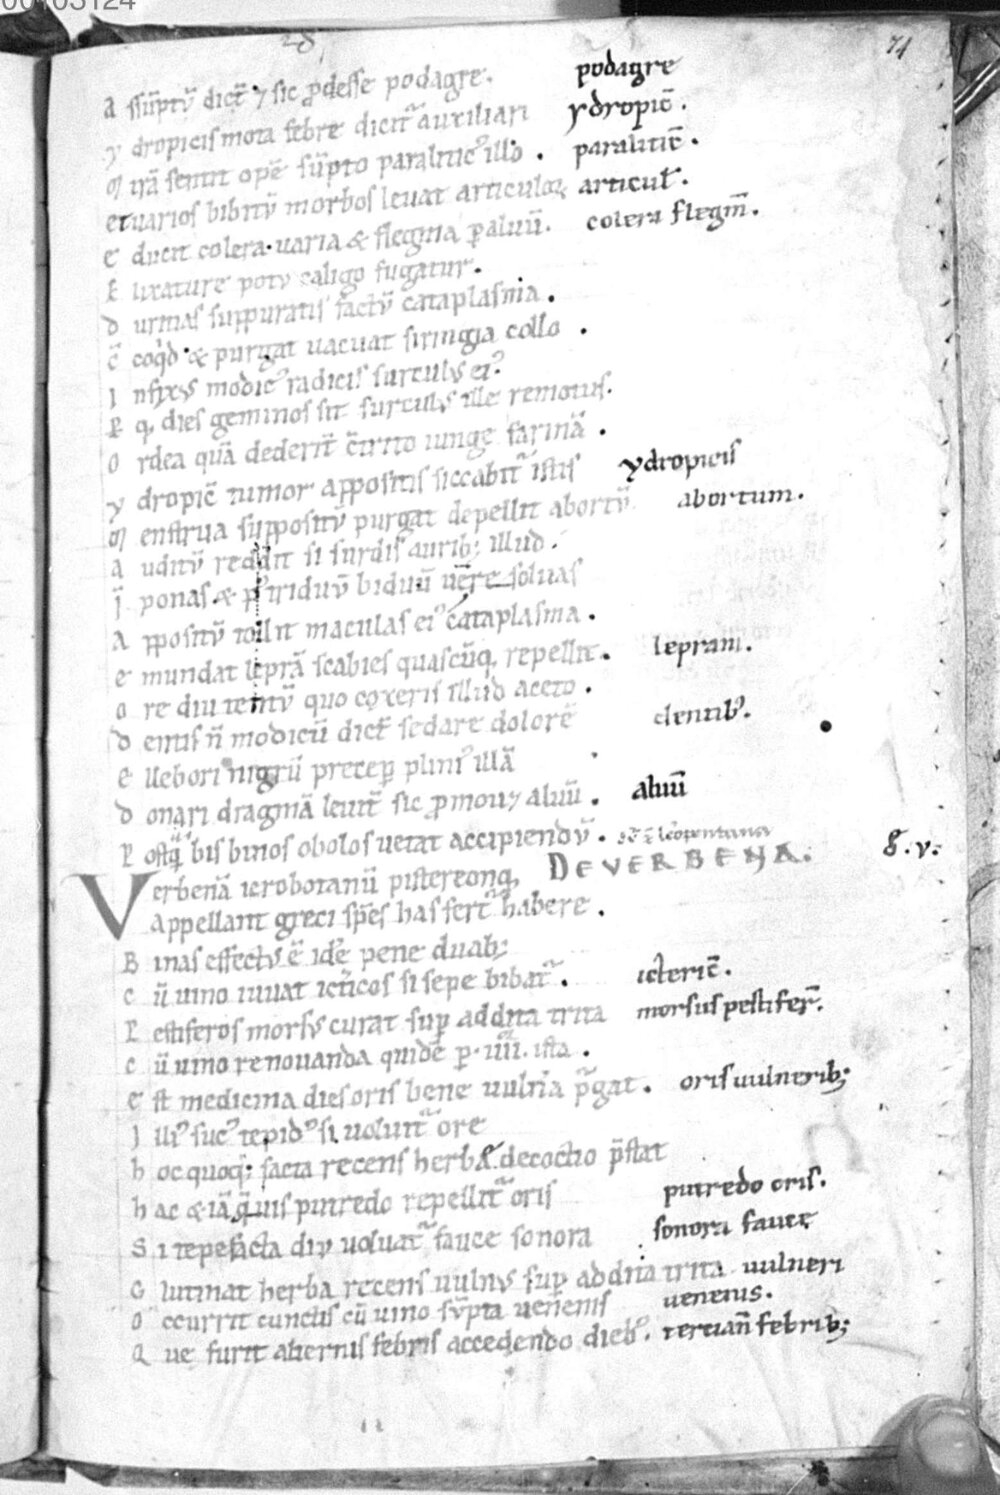 00103124
74
A ssūptū dict̄ ⁊ sic p̄desse podagre. podagre
y dropicis mota febre dicit᷑ auxiliari ydropic̄.
etuarios bibitū morbos levat articuloꝝ articul̄.
E ducit colera varia & flegma p̄ aluū. colera flegm̄.
E lixature potu caligo fugatur.
D uricias suppuratis factū cataplasma.
& purgat vacuat siringia collo.
I nfixus modicꝰ radicis surculus eiꝰ.
P q, dies geminos sit surculus ille remotus.
O rdea quā dederit c̄ trito iunge farinā.
y dropic̄ tumor appositis siccabit᷑ istis ydropicis
M enstrua suppositū purgat depellit abortū abortum.
A uditū reddit si surdis aurib; illud.
I ponas & p̄ triduū biduū vē re solvas
A ppositū tollit maculas eiꝰ cataplasma.
E mundat leprā scabies quascūq, repellit. lepram.
O re diu tentū quo coxeris illud aceto.
D entis n̄ modicū dict̄ sedare dolorē dentibꝰ.
E llebori nigrū precep̄ pliniꝰ illā
D onari dragmā levit̄ sic p̄mov⁊ alvū. aluū
P ostq̄ bis binos obolos vetat accipiendū.
DE VERBENA. g. v:
Verbenā ieroboranū pistereonq,
Appellant greci sp̄es has fert᷑ habere.
B inas effectus ē idē pene duab;
C ū vino iuvat ict̄icos si sepe bibat᷑. icteric̄.
P estiferos morsus curat sup̄ addita trita morsus pestifer̄.
C ū vino renovanda quidē p̄ .iiii. ista.
E st medicina dies oris bene vulna p̄gat. oris vulnerib;
I lliꝰ sucꝰ tepidꝰ si volvit᷑ ore
h oc quoq; facta recens herbę decoctio p̄stat
h ac & iā q̄vis putredo repellit᷑ oris putredo oris.
S i tepefacta diu voluat᷑ fauce sonora sonora fauce
G lutinat herba recens vulnus sup̄ addita trita vulneri
O ccurrit cunctis cū vino sūpta venenis venenis.
Q ue furit alternis febris accedendo diebꝰ. tercian̄ febrib;